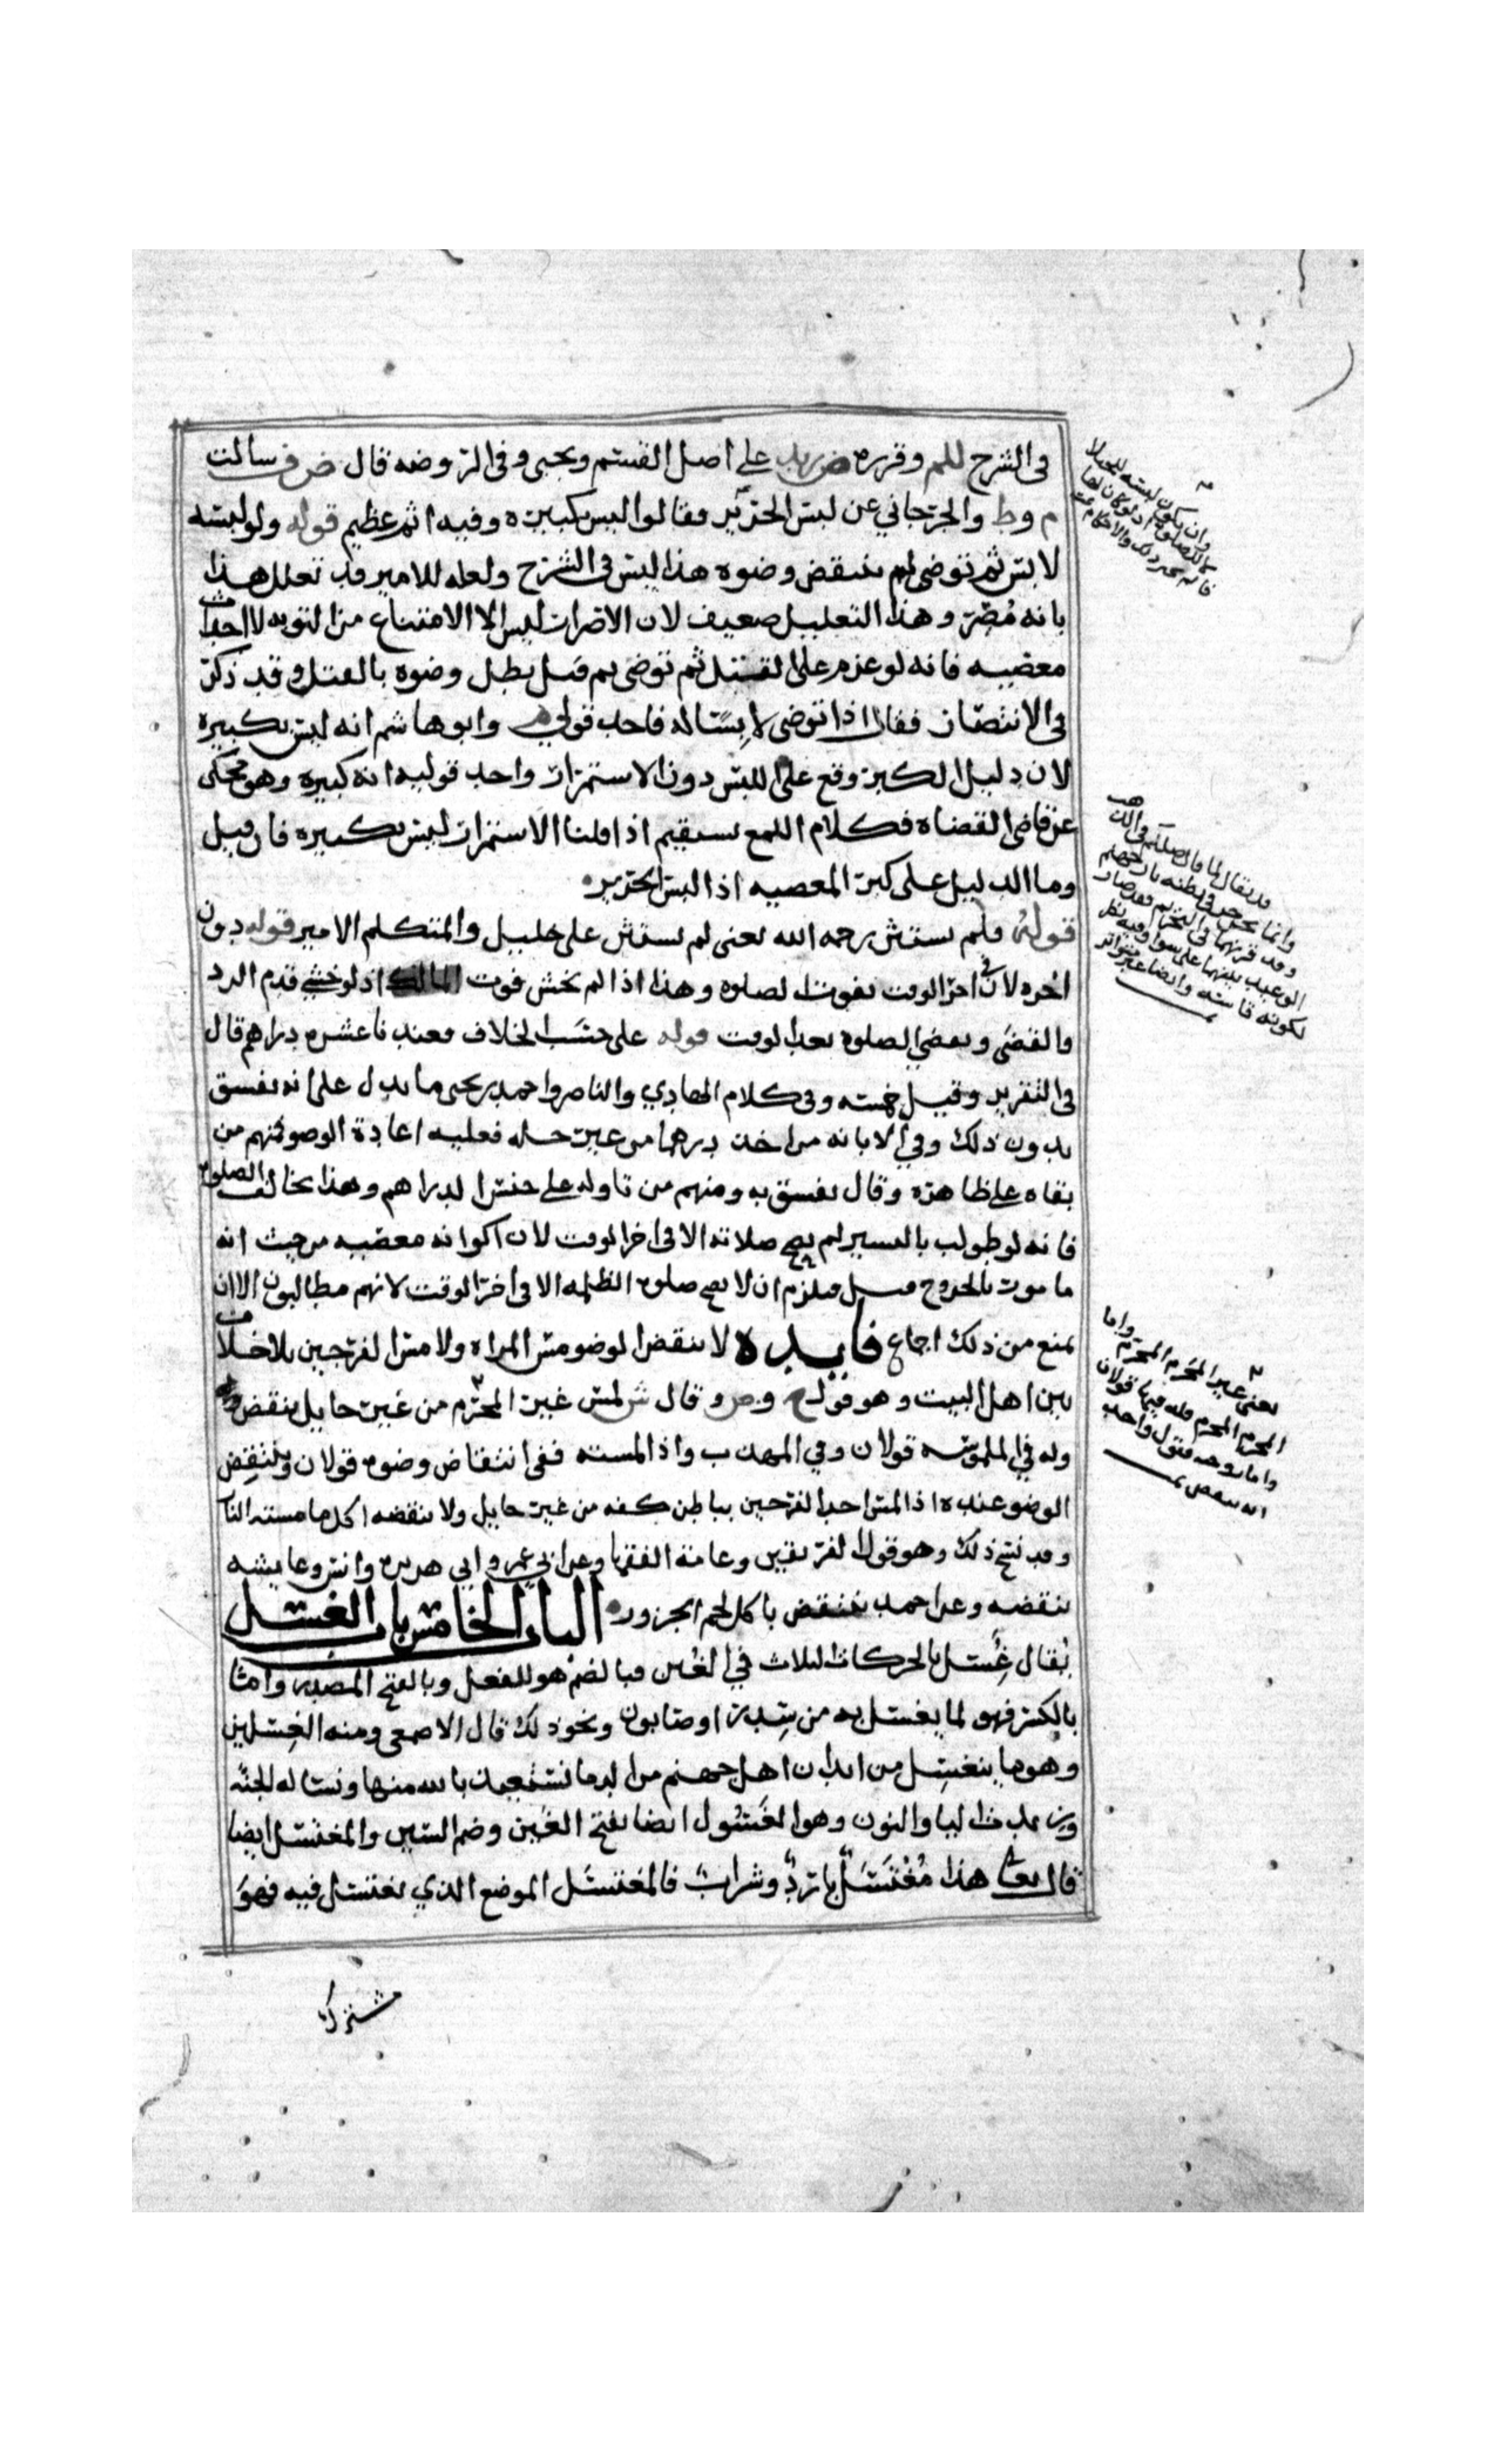 في الشرح للم وقرره ض زيد على اصل القسم ويحيى وفي الروضه قال ض ف سالت
م وط والجرجاني عن لبس الحرير فقالوا ليس بكبيرة وفيه اثم عظيم قوله ولو لبسه
لابس ثم توضى لم ينتقض وضوه هذا ليس في الشرح ولعله للامير وقد تعلل هذا
بانه مُصِرّ وهذا التعليل ضعيف لان الاصرار ليس الا الامتناع من التوبه لا احداث
معصيه فانه لو عزم على القتل ثم توضى ثم قتل بطل وضوه بالقتل وقد ذكر
في الانتصار فقال اذا توضى لابسًا له فاحد قولي م وابو هاشم انه ليس بكبيره
لان دليل الكبر وقع على اللبس دون الاستمرار واحد قوليه انه كبيره وهو محكى
عن قاضي القضاة فكلام اللمع يستقيم اذا قلنا الاستمرار ليس بكبيره فان قيل
وما الدليل على كبر المعصيه اذا لبس الحرير
قوله فلم يستثن رحمه الله يعني لم يستثن علي خليل والمتكلم الامير قوله دون
اخره لان في اخر الوقت تفوت الصلوه وهذا اذا لم يخش فوت المالك اذ لو خشي قدم الرد
والقضى وبعضي الصلوه بعد الوقت قوله على حسب الخلاف فعندنا عشره دراهم قال
في التقرير وقيل خمسه وفي كلام الهادي والناصر واحمد بن يحيى ما يدل على انه يفسق
بدون ذلك وفي الابانه من اخذ درهما من غير حله فعليه اعادة الوضو فمنهم من
بقاه على ظاهره وقال يفسق به ومنهم من تاوله على جنس الدراهم وهذا بخالف الصلوة
فانه لو طولب باليسير لم يصح صلاته الا في اخر الوقت لان اكوانه معصيه من حيث انه
مامور بالخروج قيل فيلزم ان لا يصح صلوه الظلمه الا في اخر الوقت لانهم مطالبون الا ان
يمنع من ذلك اجماع فايده لا ينقض الوضو مس المراه ولا مس الفرجين بلا خلاف
بين اهل البيت وهو قول ح وص وقال ش لمس غير المحرم من غير حايل ينقض
وله في الملموسه قولان وفي المهذب واذا لمسته ففي انتقاض وضوه قولان وينتقض
الوضو عنده اذا لمس احد الفرجين بباطن كفه من غير حايل ولا ينقضه اكل ما مسته النار
وقد نسخ ذلك وهو قول الفريقين وعامة الفقها وعن ابي عمر و ابي هريره وانس وعايشه
ينقضه وعن احمد ينتقض باكل لحم الجزور الباب الخامس باب الغسل
يُقال غسل بالحركات الثلاث في الغين فبالضم هو للفعل وبالفتح المصدر وامّا
بالكسر فهو لما يغتسل به من سِدر او صابون ونحو ذلك قال الاصمعي ومنه الغِسلين
وهو ما ينغسِل من ابدان اهل جهنم من الدما نستعيذ بالله منها ونساله الجنه
وزيدت اليا والنون وهو الغَسُول ايضا بفتح الغين وضم السين والمغتسل ايضا
قال تعا هذا مُغْتَسَلٌ باردٌ وشرابٌ فالمغتسَل الموضع الذي يغتسل فيه فهوَ
مشترك
وان يكون لبسه للحرير
قد يقال لما قال صللم في الذهب
وانما يجرجر في بطنه نار جهنم
وقد قرنهما في التحريم فقد صار
الوعيد بينهما على سوا وفيه نظر
لكونه قاسه وايضا غير متواتر
يعني غير المحَرم المحرم واما
المحرم المحرم فله فيها قولان
واما زوجه فقول واحد
انه ينقض